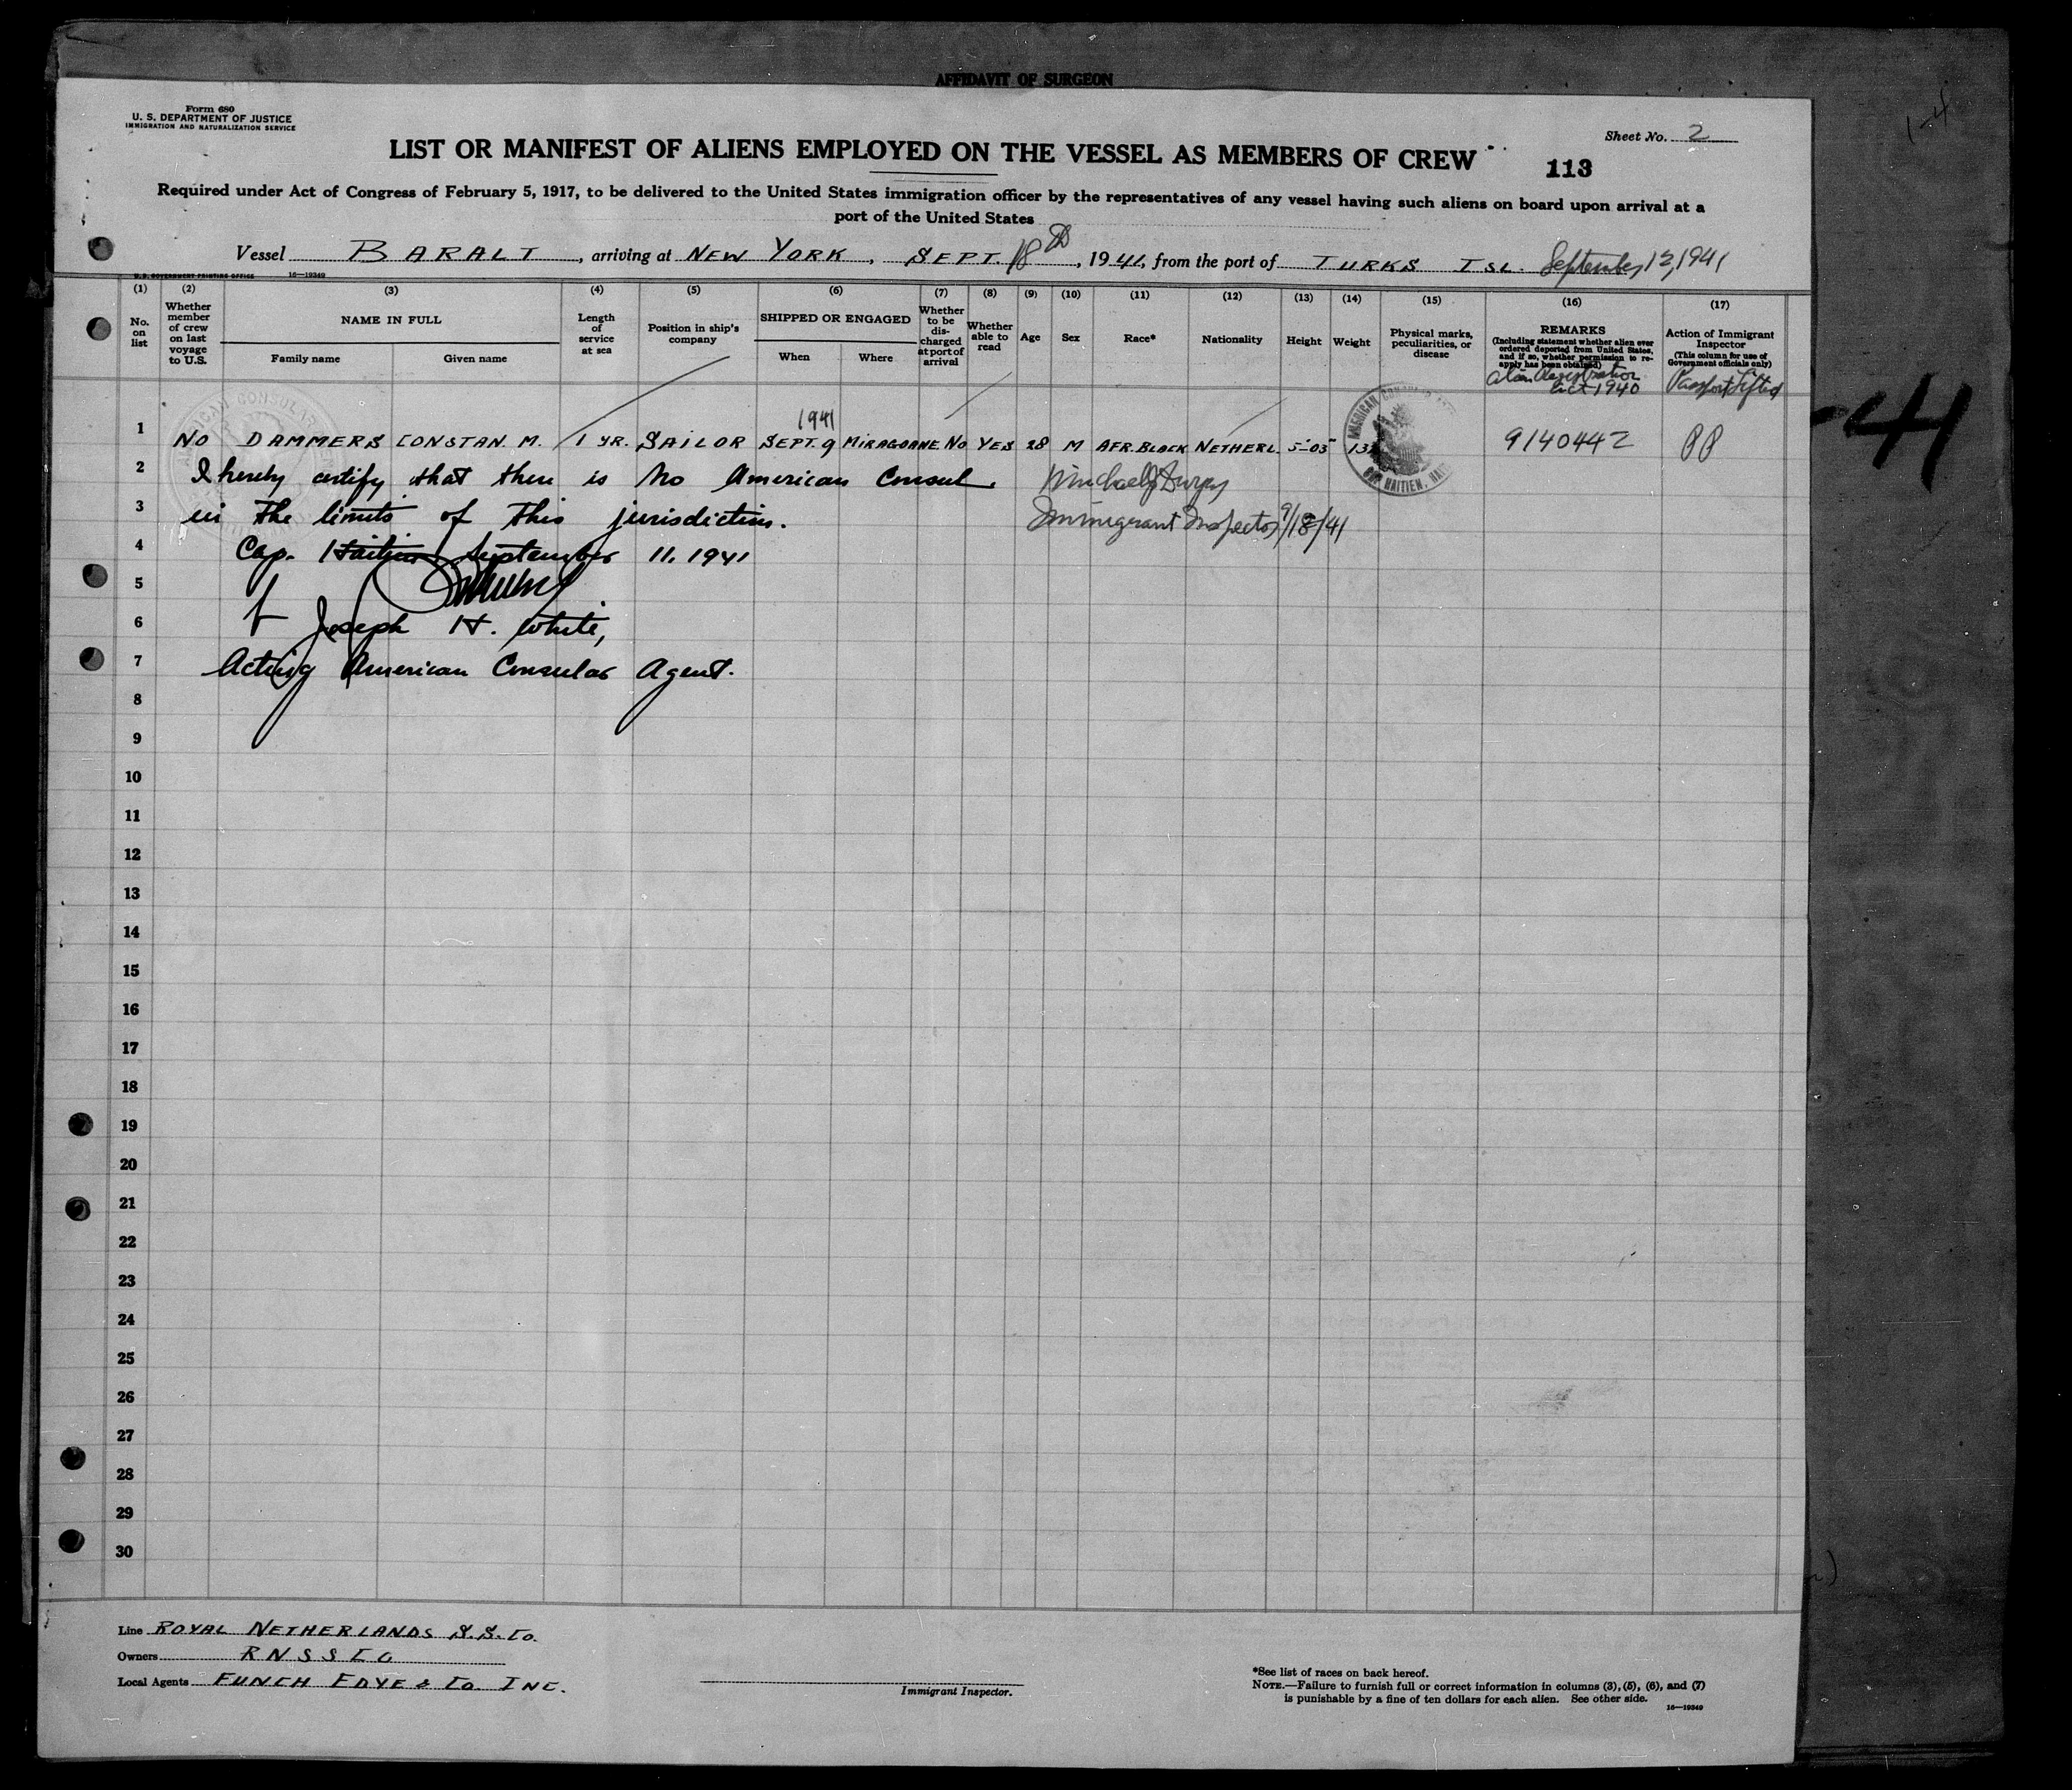 AFFIDAVIT OF SURGEON
Form 680
U. S. DEPARTMENT OF JUSTICE
IMMIGRATION AND NATURALIZATION SERVICE
Sheet No. 2
LIST OR MANIFEST OF ALIENS EMPLOYED ON THE VESSEL AS MEMBERS OF CREW
113
Required under Act of Congress of February 5, 1917, to be delivered to the United States immigration officer by the representatives of any vessel having such aliens on board upon arrival at a
port of the United States
Vessel BARALT, arriving at NEW YORK, SEPT. 18th, 1941, from the port of TURKS ISL. September 12, 1941
U. S. GOVERNMENT PRINTING OFFICE 16—19349
(1) (2) (3) (4) (5) (6) (7) (8) (9) (10) (11) (12) (13) (14) (15) (16) (17)
No. on list
Whether member of crew on last voyage to U.S.
NAME IN FULL
Family name Given name
Length of service at sea
Position in ship's company
SHIPPED OR ENGAGED
When Where
Whether to be dis-charged at port of arrival
Whether able to read
Age
Sex
Race*
Nationality
Height
Weight
Physical marks, peculiarities, or disease
REMARKS
(Including statement whether alien ever ordered deported from United States, and if so, whether permission to re-apply has been obtained)
Alien Registration
Act 1940
Action of Immigrant Inspector
(This column for use of Government officials only)
Passport Lifted
1941
1 NO DAMMERS CONSTAN. M. 1 YR. SAILOR SEPT. 9 MIRAGOANE NO YES 28 M AFR. BLACK NETHERL. 5-03 9140442 PP
2 I hereby certify that there is no American Consul
3 in the limits of this jurisdiction.
Immigrant Inspector 9/18/41
4 Cap. Haitien September 11, 1941
5
6 Joseph H. White,
7 Acting American Consular Agent.
8
9
10
11
12
13
14
15
16
17
18
19
20
21
22
23
24
25
26
27
28
29
30
AMERICAN
CAP HAITIEN, HAITI
41
Line ROYAL NETHERLANDS S.S. Co.
Owners R N S S Co
Local Agents FUNCH EDYE & Co INC.
Immigrant Inspector.
*See list of races on back hereof.
NOTE.—Failure to furnish full or correct information in columns (3), (5), (6), and (7)
is punishable by a fine of ten dollars for each alien. See other side.
16—19349